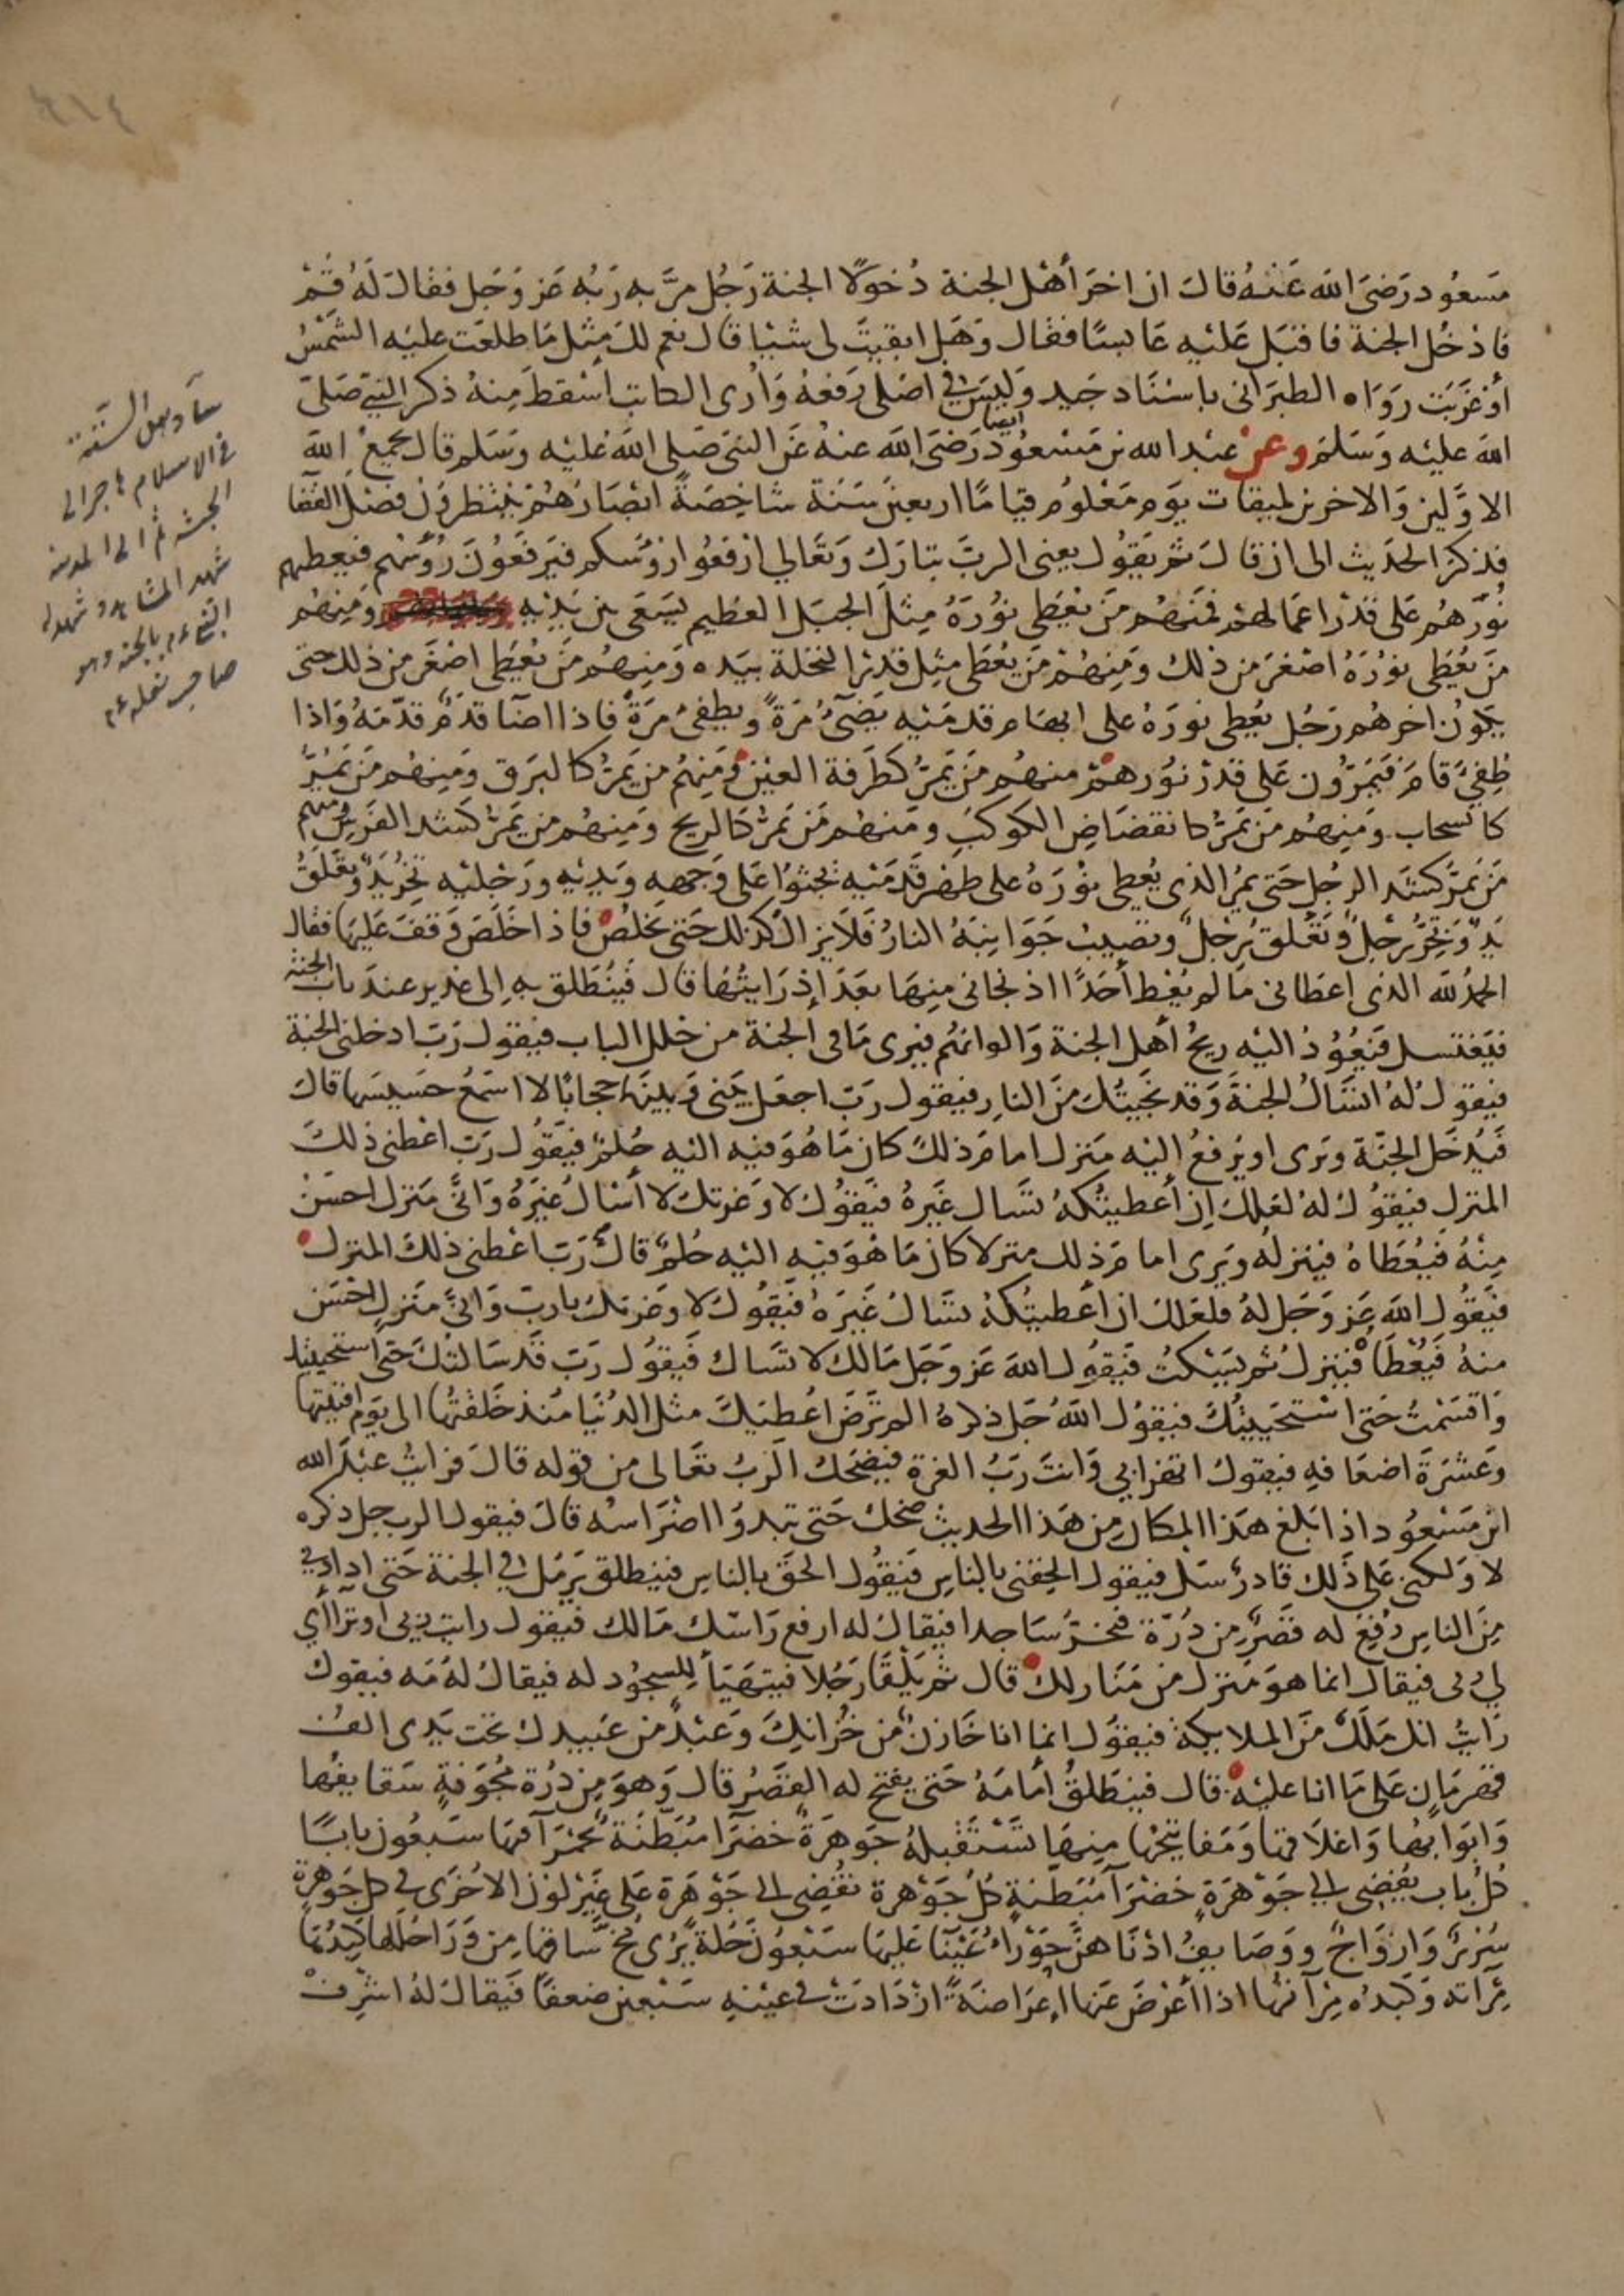 ٤١٤
مسعود رضى الله عنه قال ان اخر أهل الجنة دخولا الجنة رجل مر به ربه عز وجل فقال له قم
فادخل الجنة فاقبل عليه عابسا فقال وهل ابقيت لى شيا قال نعم لك مثل ما طلعت عليه الشمس
أو غربت رواه الطبرانى باسناد جيد وليس فى اصلى رفعه وأرى الكاتب اسقط منه ذكر النبى صلى
الله عليه وسلم وعن عبد الله بن مسعود ايضا رضى الله عنه عن النبى صلى الله عليه وسلم قال يجمع الله
الاولين والاخرين لميقات يوم معلوم قياما اربعين سنة شاخصة ابصارهم ينتظرون فصل القضا
فذكر الحديث الى ان قال ثم يقول يعنى الرب تبارك وتعالي ارفعوا رؤسكم فيرفعون رؤسهم فيعطيهم
نورهم على قدر اعمالهم فمنهم من يعطى نوره مثل الجبل العظيم يسعى بين يديه ومنهم
من يعطى نوره اصغر من ذلك ومنهم من يعطى مثل قدر النخلة بيده ومنهم من يعطى اصغر من ذلك حتى
يكون اخرهم رجل يعطى نوره على ابهام قدميه يضئ مرة ويطفئ مرة فاذا اضا قدم قدمه واذا
طفئ قام فيمرون على قدر نورهم منهم من يمر كطرفة العين ومنهم من يمر كالبرق ومنهم من يمر
كالسحاب ومنهم من يمر كانقضاض الكوكب ومنهم من يمر كالريح ومنهم من يمر كشد الفرس ومنهم
من يمر كشد الرجل حتى يمر الذى يعطى نوره على ظهر قدميه يحثوا على وجهه ويديه ورجليه تخر يد وتعلق
يد وتخر رجل وتعلق رجل وتصيب جوانبه النار فلا يزال كذلك حتى يخلص فاذا خلص وقف عليها فقال
الحمد لله الذى اعطانى ما لم يعط أحدا اذ نجانى منها بعد اذ رايتها قال فينطلق به الى غدير عند باب الجنة
فيغتسل فيعود اليه ريح أهل الجنة والوانهم فيرى ما فى الجنة من خلل الباب فيقول رب ادخلنى الجنة
فيقول له اتسال الجنة وقد نجيتك من النار فيقول رب اجعل بينى وبينها حجابا لا اسمع حسيسها قال
فيدخل الجنة ويرى او يرفع اليه منزل امام ذلك كان ما هو فيه اليه حلم فيقول رب اعطنى ذلك
المنزل فيقول له لعلك ان أعطيتكه تسال غيره فيقول لا وعزتك لا أسال غيره وانى منزل احسن
منه فيعطاه فينزله ويرى امام ذلك منزلا كان ما هو فيه اليه حلم قال رب اعطنى ذلك المنزل
فيقول الله عز وجل له فلعلك ان أعطيتكه تسال غيره فيقول لا وعزتك يا رب وانى منزل احسن
منه فيعطا فينزل ثم يسكت فيقول الله عز وجل مالك لا تسال فيقول رب قد سالتك حتى استحييتك
واقسمت حتى استحييتك فيقول الله جل ذكره الم ترض اعطيك مثل الدنيا منذ خلقتها الى يوم افنيتها
وعشرة اضعافه فيقول اتهزا بى وانت رب العزة فيضحك الرب تعالى من قوله قال فرايت عبد الله
ابن مسعود اذا بلغ هذا المكان من هذا الحديث ضحك حتى تبدوا اضراسه قال فيقول الرب جل ذكره
لا ولكنى على ذلك قادر سل فيقول الحقنى بالناس فيقول الحق بالناس فينطلق يرمل في الجنة حتى اذا دنى
من الناس رفع له قصر من درة فيخر ساجدا فيقال له ارفع راسك مالك فيقول رايت ربى او ترااى
لي ربى فيقال انما هو منزل من منازلك قال ثم يلقا رجلا فيتهيأ للسجود له فيقال له مه فيقول
رايت انك ملك من الملايكة فيقول انما انا خازن من خزانك وعبد من عبيدك تحت يدى الف
قهرمان على ما انا عليه قال فينطلق أمامه حتى يفتح له القصر قال وهو من درة مجوفة سقايفها
وابوابها واغلاقها ومفاتيحها منها تستقبله جوهرة خضرا مبطنة بحمرآ فيها سبعون بابا
كل باب يفضى الى جوهرة خضرآ مبطنة كل جوهرة تفضى الى جوهرة على غير لون الاخرى فى كل جوهرة
سرر وازواج ووصايف ادناهن حورا عينا عليها سبعون حلة يرى مخ ساقها من ورا حللها كبدها
مرآته وكبده مرآتها اذا أعرض عنها اعراضة ازدادت فى عينه سبعين ضعفا فيقال له اشرف
فى الاسلام هاجر الى
الحبشة ثم الى المدينة
شهد المشاهد وشهد له
النبى عم بالجنة وهو
صاحب نعله عم